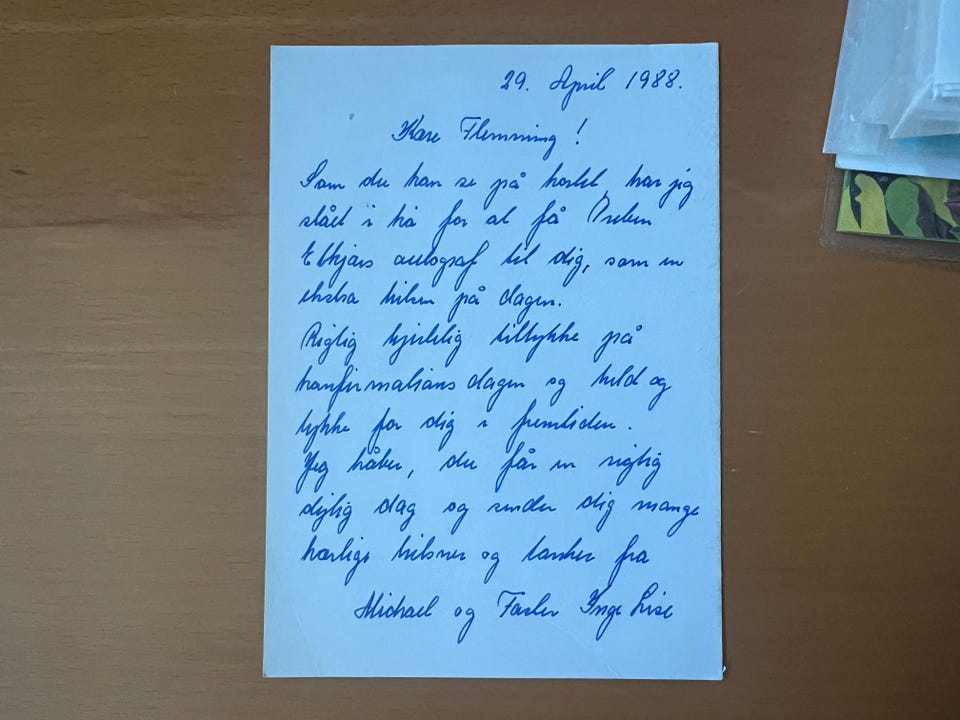 29. April 1988.
Kære Flemming!
Som du kan se på kortet, har jeg
slået i kra for at få Preben
Elkjærs autograf til dig, som en
ekstra hilsen på dagen.
Rigtig hjertelig tillykke på
konfirmations dagen og held og
lykke for dig i fremtiden.
Jeg håber, du får en rigtig
dejlig dag og sender dig mange
kærlige hilsner og tanker fra
Michael og Faster Inge Lise